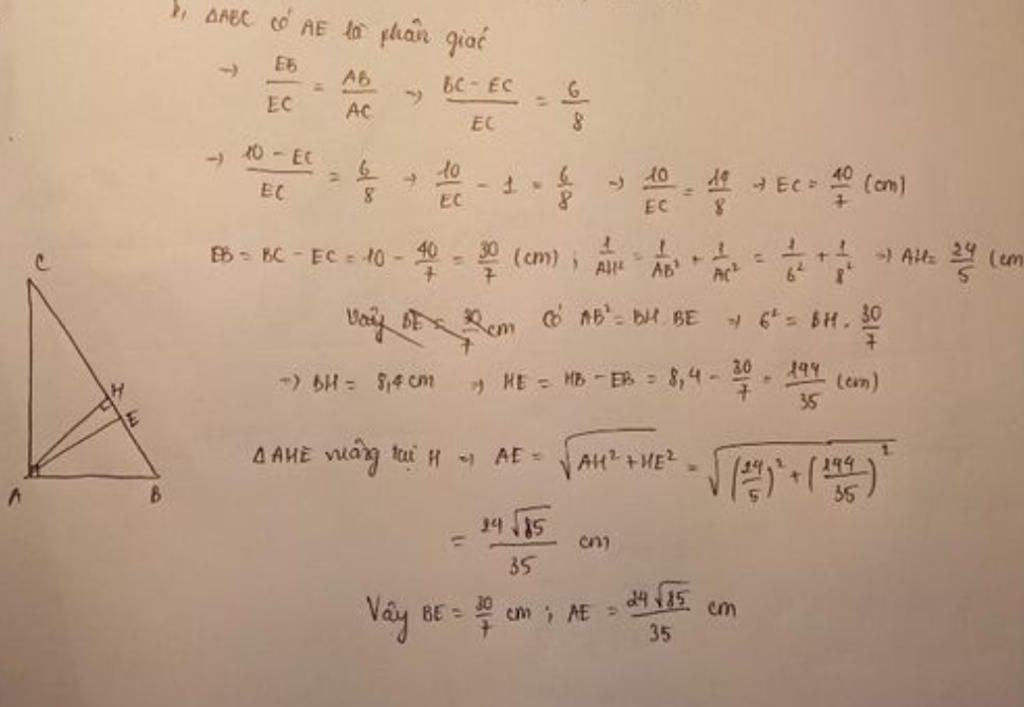 b, ΔABC có AE là phân giác
→ EB/EC = AB/AC → (BC - EC)/EC = 6/8
→ (10 - EC)/EC = 6/8 → 10/EC - 1 = 6/8 → 10/EC = 14/8 → EC = 40/7 (cm)
EB = BC - EC = 10 - 40/7 = 30/7 (cm) ; 1/AH² = 1/AB² + 1/AC² = 1/6² + 1/8² → AH = 24/5 (cm
Vậy BE = 30/7 cm Có AB² = BH . BE → 6² = BH . 30/7
→ BH = 8,4 cm → HE = HB - EB = 8,4 - 30/7 = 144/35 (cm)
ΔAHE vuông tại H → AE = √(AH² + HE²) = √((24/5)² + (144/35)²)
= 24√85/35 cm
Vậy BE = 30/7 cm ; AE = 24√85/35 cm
C
H
E
A B